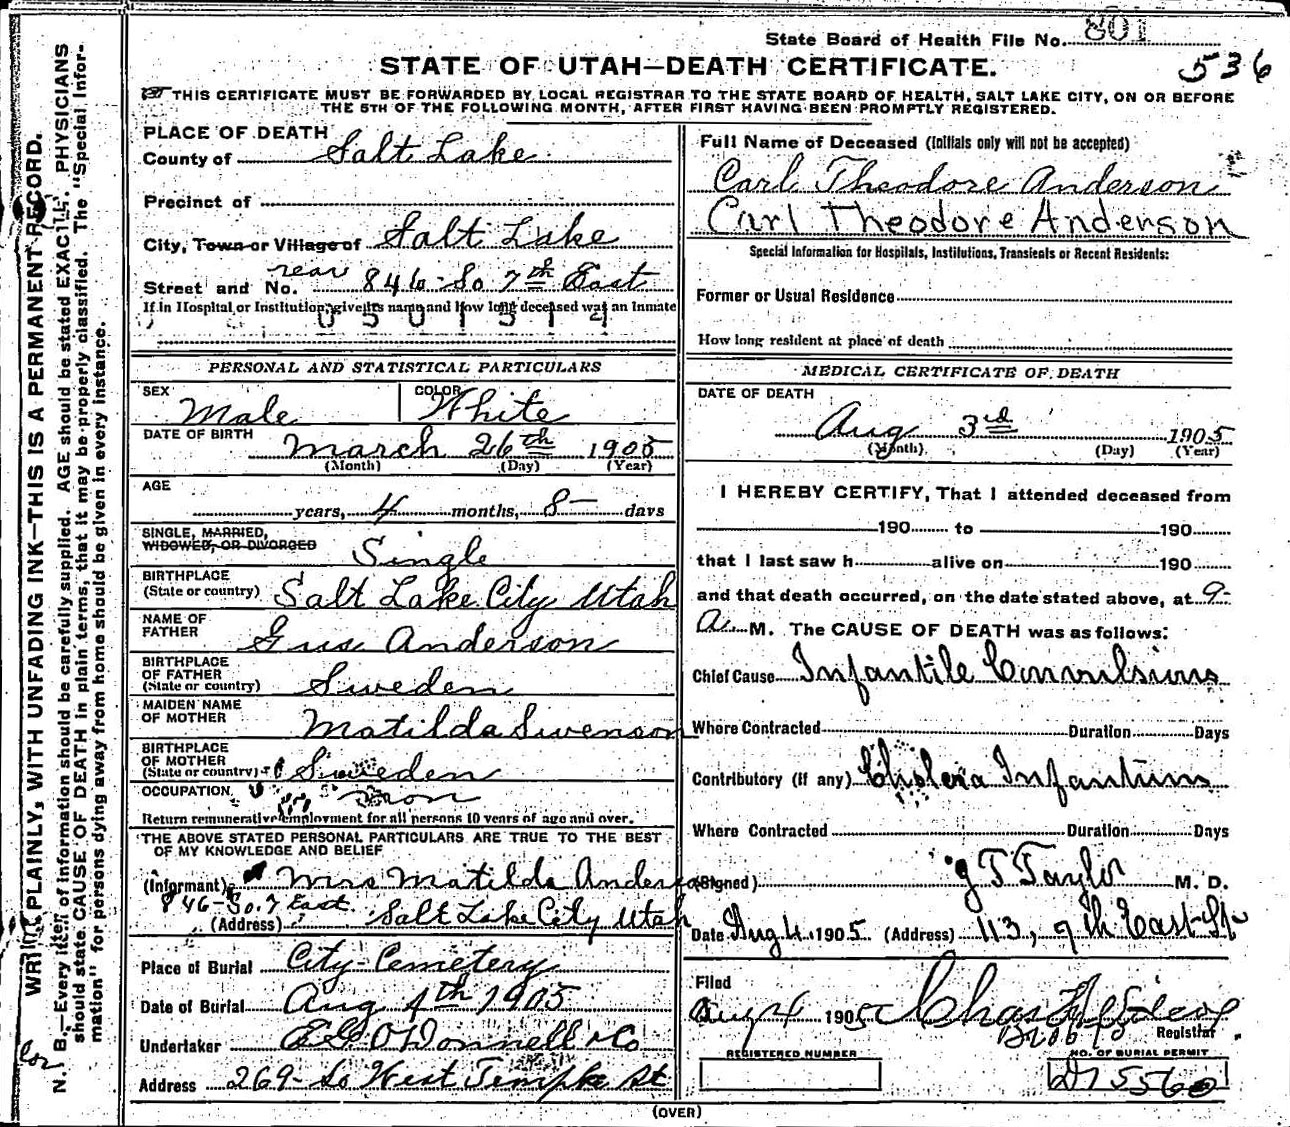 State Board of Health File No. 801
536
STATE OF UTAH—DEATH CERTIFICATE.
THIS CERTIFICATE MUST BE FORWARDED BY LOCAL REGISTRAR TO THE STATE BOARD OF HEALTH, SALT LAKE CITY, ON OR BEFORE
THE 5TH OF THE FOLLOWING MONTH, AFTER FIRST HAVING BEEN PROMPTLY REGISTERED.
PLACE OF DEATH
County of Salt Lake
Precinct of
City, Town or Village of Salt Lake
Street and No. rear 846 So 7th East
If in Hospital or Institution, give its name and how long deceased was an Inmate
0501514
PERSONAL AND STATISTICAL PARTICULARS
SEX Male COLOR White
DATE OF BIRTH March 26th 1905
(Month) (Day) (Year)
AGE
years, 4 months, 8 days
SINGLE, MARRIED,
WIDOWED, OR DIVORCED Single
BIRTHPLACE
(State or country) Salt Lake City Utah
NAME OF
FATHER Gus Anderson
BIRTHPLACE
OF FATHER
(State or country) Sweden
MAIDEN NAME
OF MOTHER Matilda Swenson
BIRTHPLACE
OF MOTHER
(State or country) Sweden
OCCUPATION
Return remunerative employment for all persons 10 years of age and over.
THE ABOVE STATED PERSONAL PARTICULARS ARE TRUE TO THE BEST
OF MY KNOWLEDGE AND BELIEF
(Informant) Mrs Matilda Anderson
846-So. 7 East.
(Address) Salt Lake City Utah
Place of Burial City Cemetery
Date of Burial Aug 4th 1905
Undertaker E G O'Donnell & Co
Address 269 So West Temple St
Full Name of Deceased (Initials only will not be accepted)
Carl Theodore Anderson
Carl Theodore Anderson
Special Information for Hospitals, Institutions, Transients or Recent Residents:
Former or Usual Residence
How long resident at place of death
MEDICAL CERTIFICATE OF DEATH
DATE OF DEATH
Aug 3rd 1905
(Month) (Day) (Year)
I HEREBY CERTIFY, That I attended deceased from
190 to 190
that I last saw h alive on 190
and that death occurred, on the date stated above, at 9
A. M. The CAUSE OF DEATH was as follows:
Chief Cause Infantile Convulsions
Where Contracted Duration Days
Contributory (if any) Cholera Infantum
Where Contracted Duration Days
(Signed) J T Taylor M. D.
Date Aug 4 1905 (Address) 113, 9th East St
Filed
Aug 4 1905
Registrar
REGISTERED NUMBER
NO. OF BURIAL PERMIT
(OVER)
WRITE PLAINLY, WITH UNFADING INK—THIS IS A PERMANENT RECORD.
N. B.—Every item of information should be carefully supplied. AGE should be stated EXACTLY. PHYSICIANS
should state CAUSE OF DEATH in plain terms, that it may be properly classified. The "Special Infor-
mation" for persons dying away from home should be given in every instance.